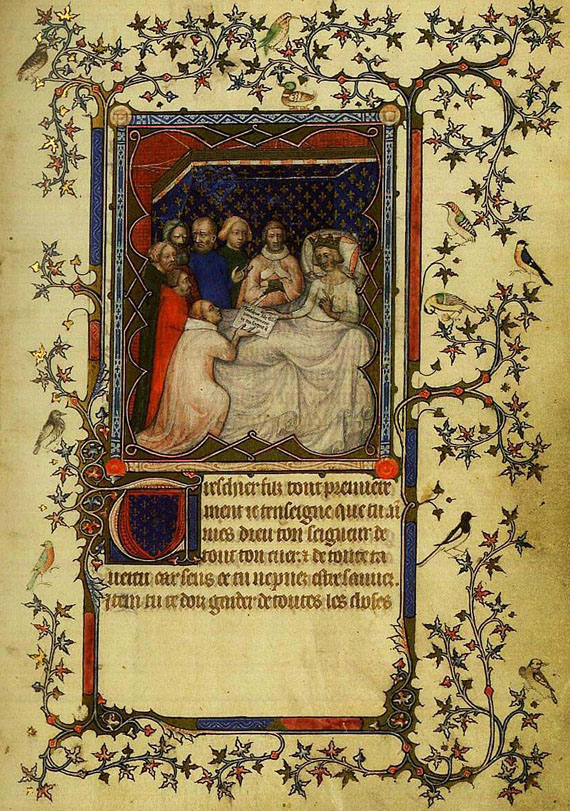 Treschier filz tout premiere
ment ie tenseigne que tu ai
mes dieu ton seigneur de
tout ton cuer & de toute ta
vertu car sens ce tu ne puez estre sauuez.
Item tu te doiz garder de toutes les choses